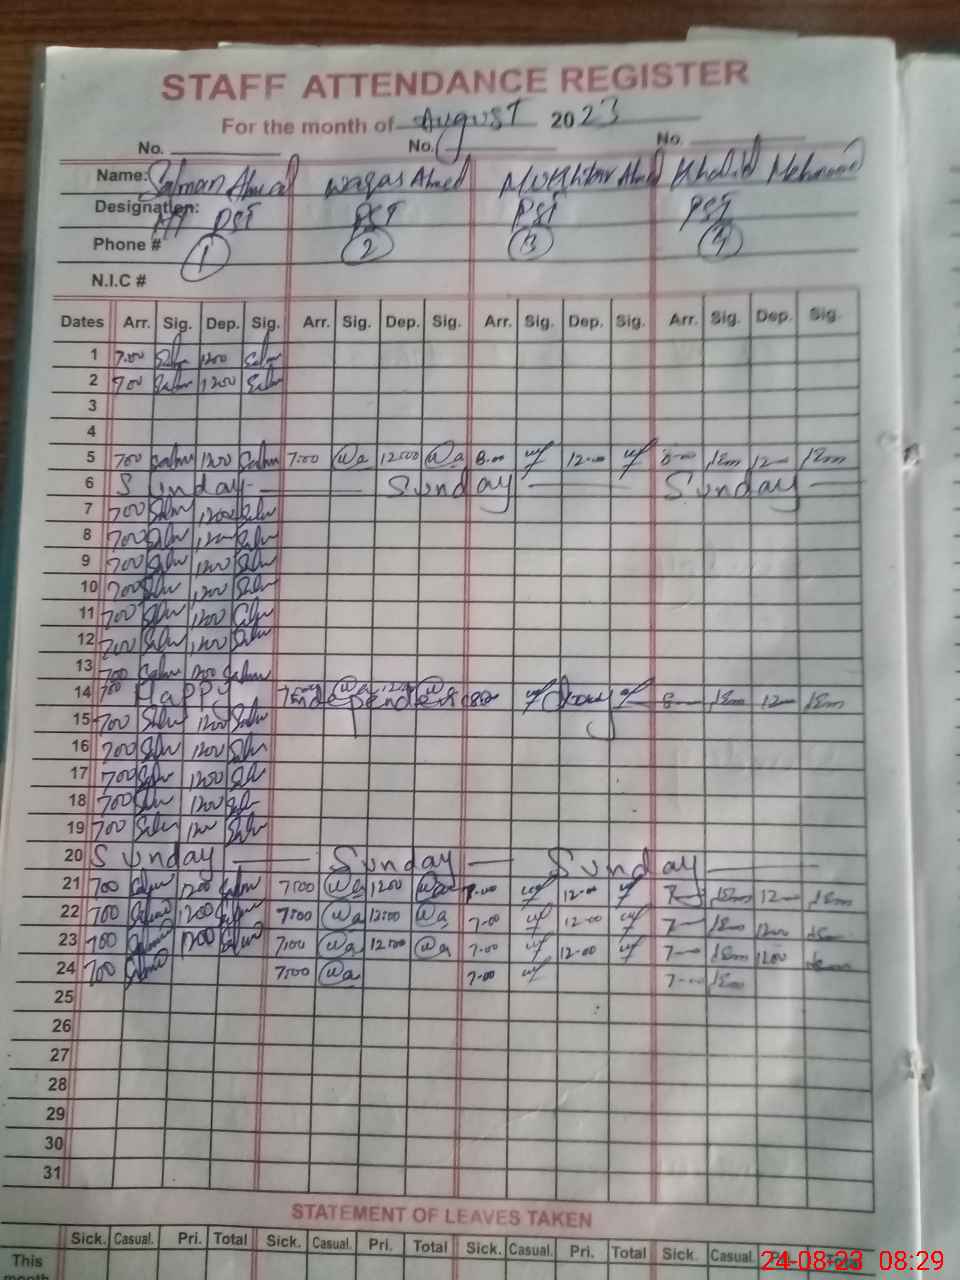 STAFF ATTENDANCE REGISTER
For the month of August 2023
No. No. No.
Name: Salman Ahmad Waqas Ahmed Mukhtiar Ahmed Khalid Mehmood
Designation: PST PST PST PST
Phone # 1 2 3 4
N.I.C #
Dates Arr. Sig. Dep. Sig. Arr. Sig. Dep. Sig. Arr. Sig. Dep. Sig. Arr. Sig. Dep. Sig.
1 7:00 Salm 1200 Salm
2 700 Salm 1200 Salm
3
4
5 700 Salm 1200 Salm 7:00 Wa 12:00 Wa 8-00 12-00 8-00 12-00
6 Sunday Sunday Sunday
7 700 Salm 1200 Salm
8 700 Salm 1200 Salm
9 700 Salm 1200 Salm
10 700 Salm 1200 Salm
11 700 Salm 1200 Salm
12 700 Salm 1200 Salm
13 700 Salm 1200 Salm
14 700 Happy Independence Day
15 700 Salm 1200 Salm
16 700 Salm 1200 Salm
17 700 Salm 1200 Salm
18 700 Salm 1200 Salm
19 700 Salm 1200 Salm
20 Sunday Sunday Sunday
21 700 Salm 1200 Salm 7:00 Wa 1200 Wa 7-00 12-00 7-00 12-00
22 700 Salm 1200 Salm 7:00 Wa 12:00 Wa 7-00 12-00 7-00 1200
23 700 Salm 1200 Salm 7:00 Wa 12:00 Wa 7-00 12-00 7-00 1200
24 700 Salm 7:00 Wa 7-00 7-00
25
26
27
28
29
30
31
STATEMENT OF LEAVES TAKEN
Sick. Casual. Pri. Total Sick. Casual. Pri. Total Sick. Casual. Pri. Total Sick. Casual Pri. Total
This
month
24-08-23 08:29